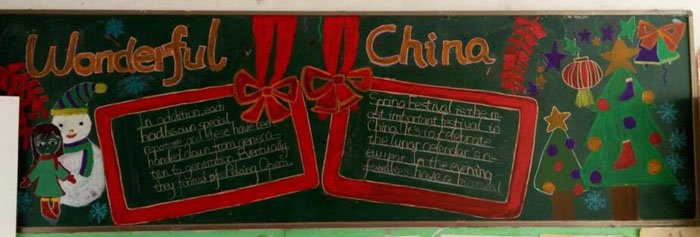 Wonderful China
In addition, each
had its own special
repertoire and these have been
handed down from genera-
tion to generation. Eventually,
they formed of Peking Opera
Spring Festival is the m-
ost important festival in
China. It's to celebrate
the lunar calendar's n-
ew year. In the evening
families have a big meal